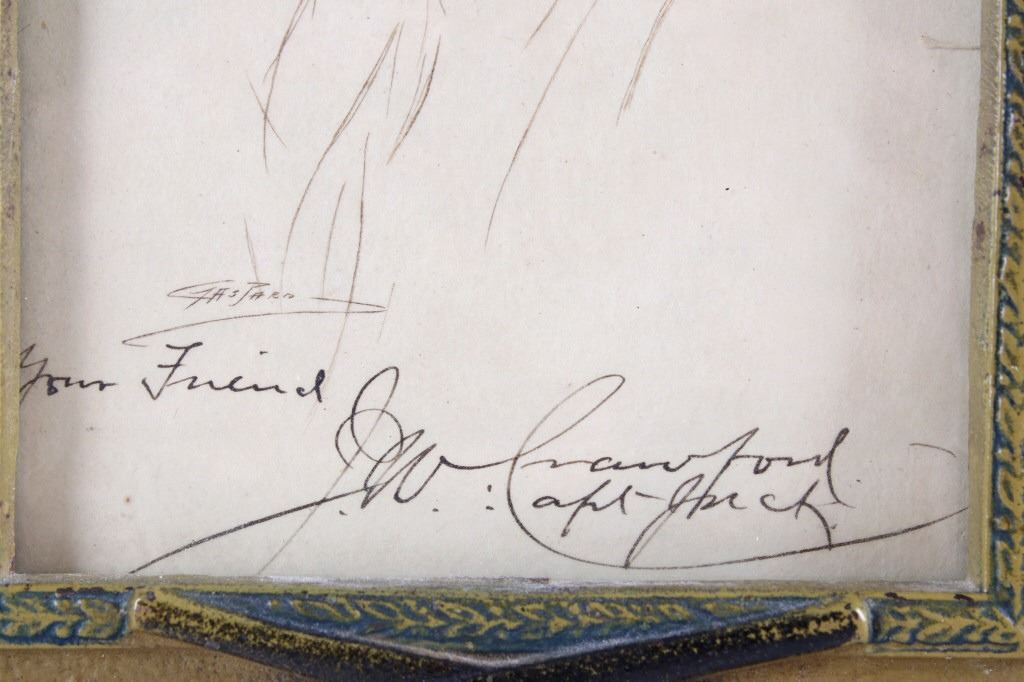 GASPARD
Your Friend
J. W. Crawford
Capt Jack.